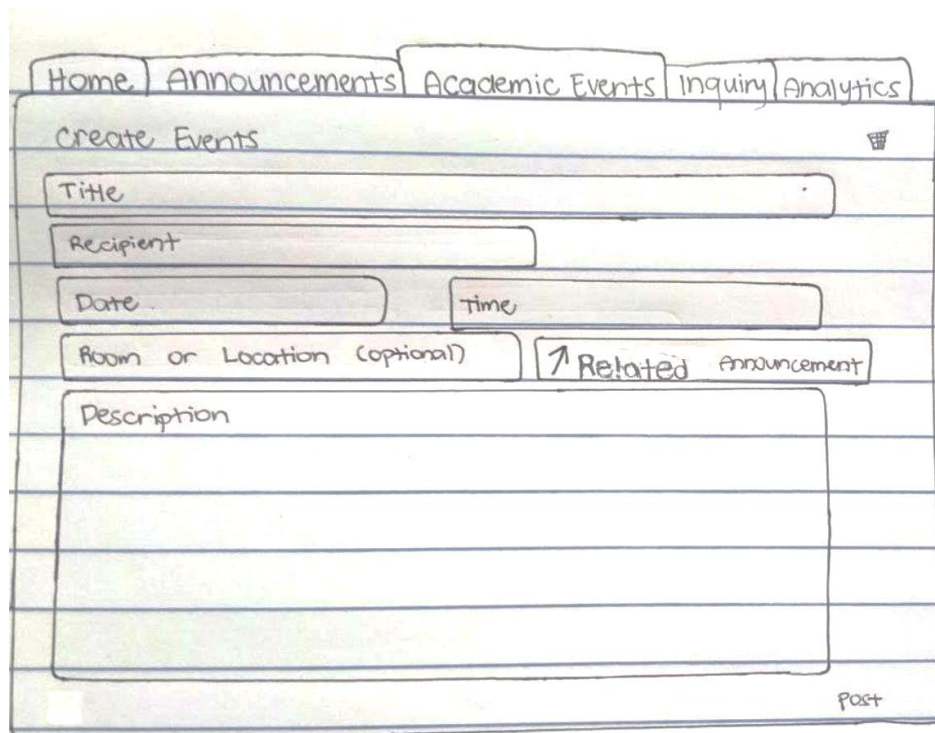 Home Announcements Academic Events Inquiry Analytics
Create Events
Title
Recipient
Date Time
Room or Location (optional) Related Announcement
Description
Post